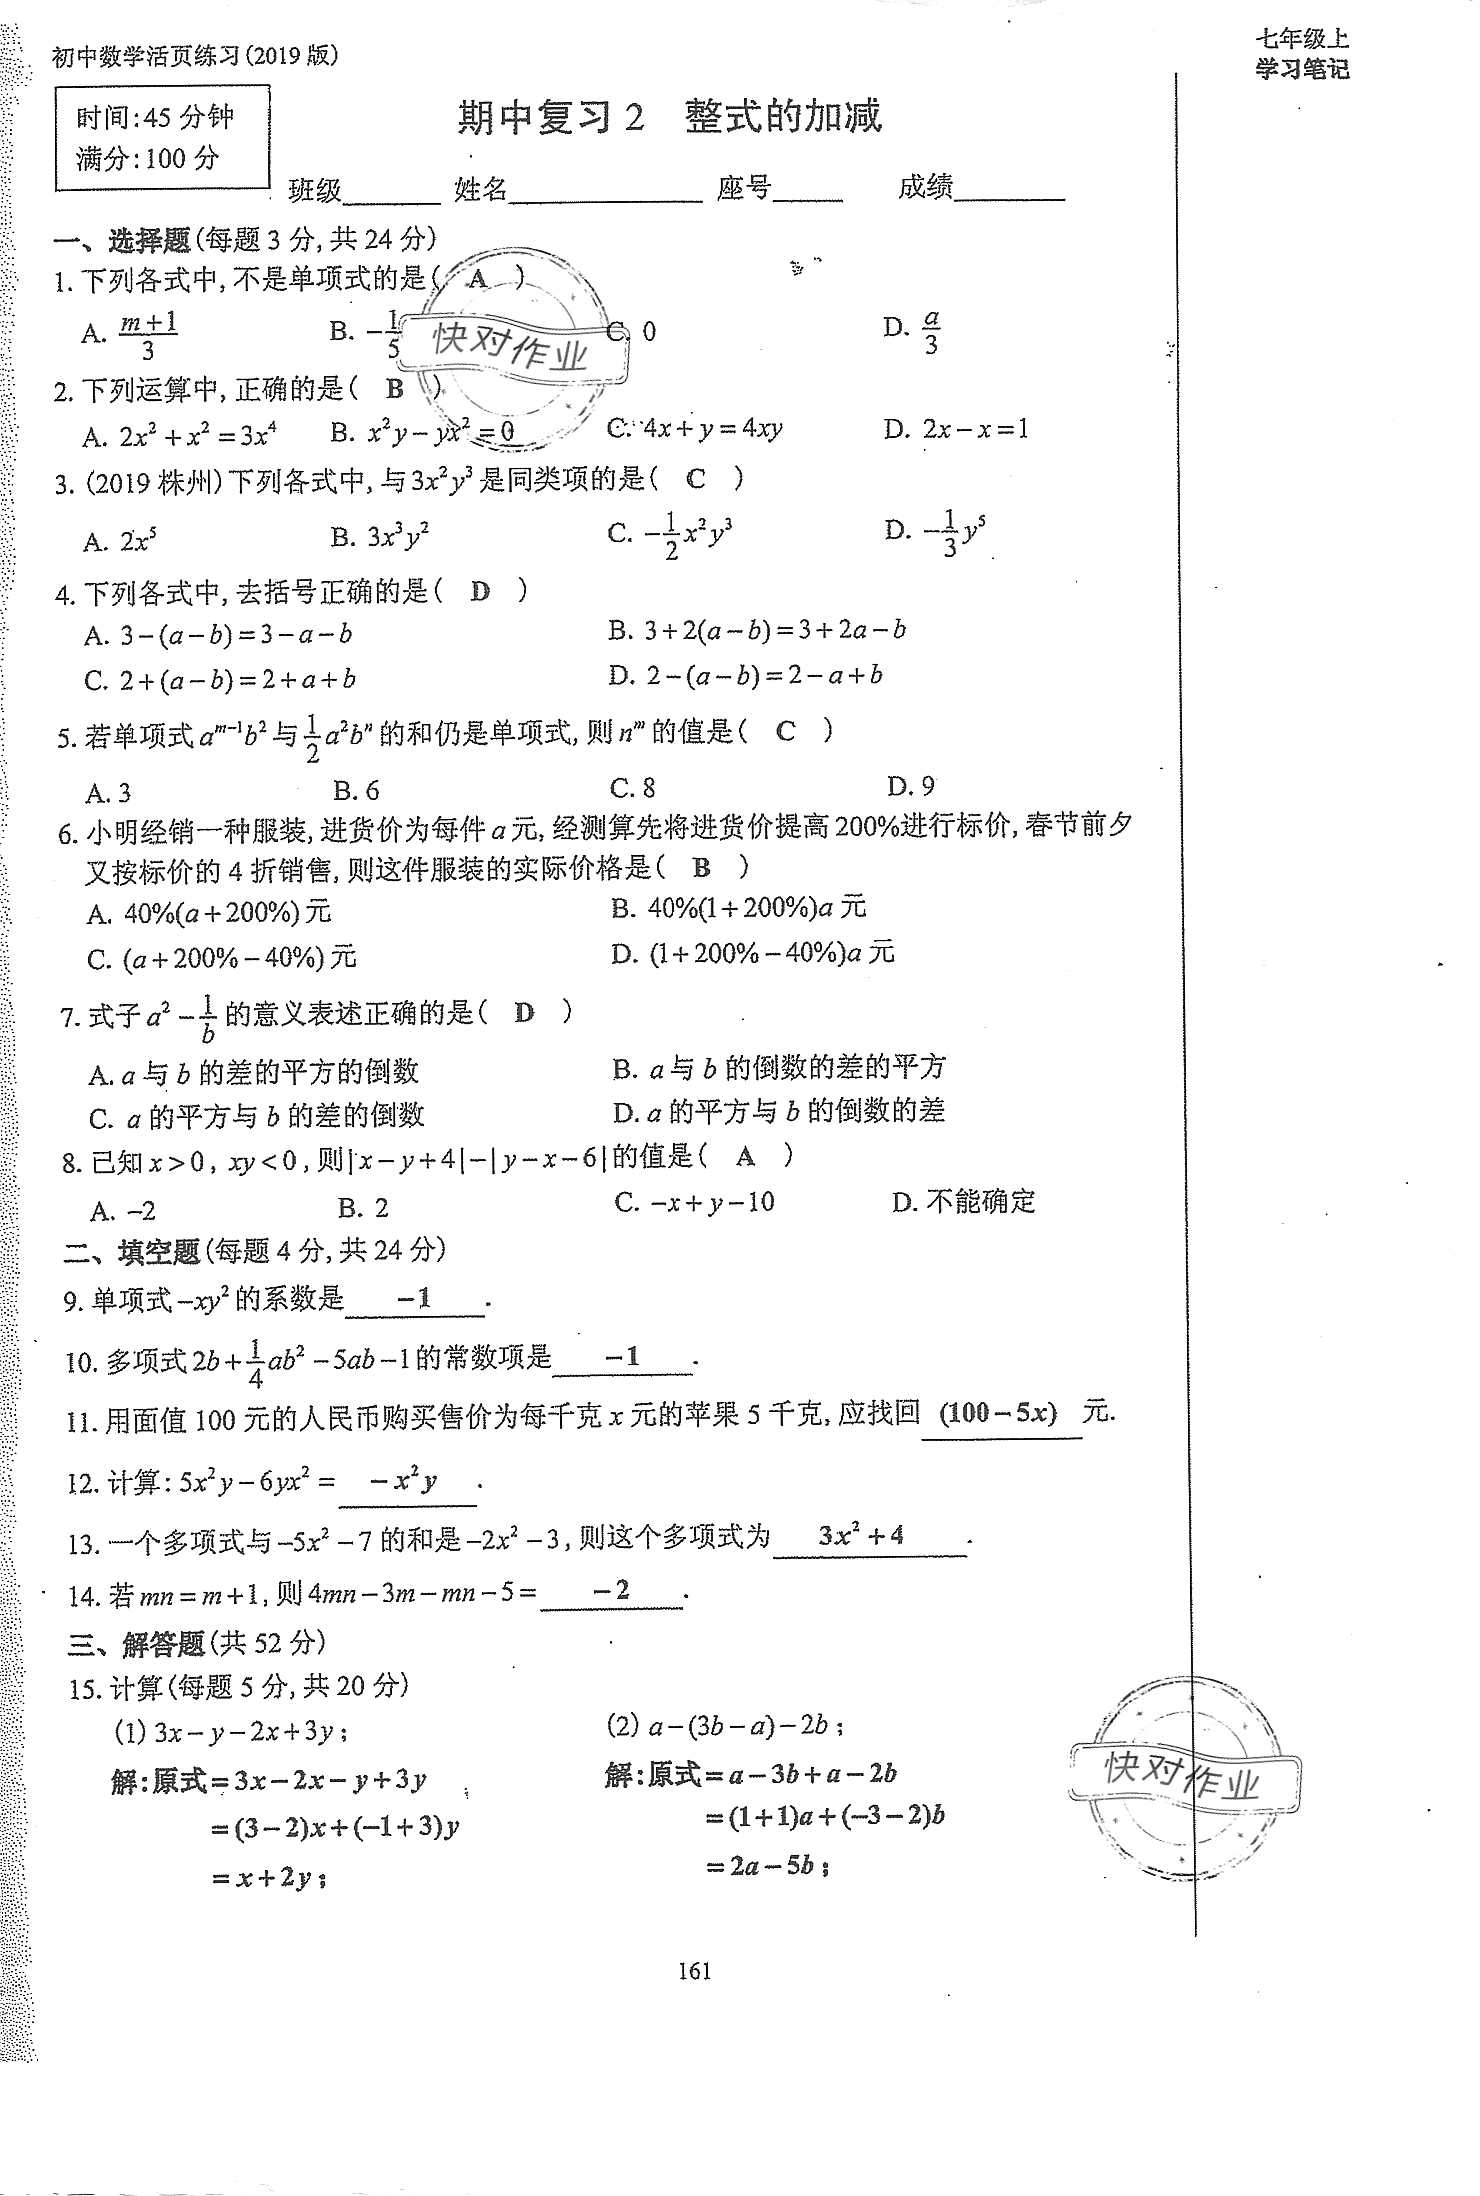 初中数学活页练习(2019版)
七年级上
学习笔记
时间:45分钟
满分:100分
期中复习2 整式的加减
班级______ 姓名____________ 座号____ 成绩_______
一、选择题(每题3分,共24分)
1. 下列各式中,不是单项式的是( A )
A. \frac{m+1}{3} B. -\frac{1}{5} C. 0 D. \frac{a}{3}
快对作业
2. 下列运算中,正确的是( B )
A. 2x²+x²=3x⁴ B. x²y-yx²=0 C. 4x+y=4xy D. 2x-x=1
3. (2019株州)下列各式中,与3x²y³是同类项的是( C )
A. 2x⁵ B. 3x³y² C. -\frac{1}{2}x²y³ D. -\frac{1}{3}y⁵
4. 下列各式中,去括号正确的是( D )
A. 3-(a-b)=3-a-b B. 3+2(a-b)=3+2a-b
C. 2+(a-b)=2+a+b D. 2-(a-b)=2-a+b
5. 若单项式a^{m-1}b²与\frac{1}{2}a²bⁿ的和仍是单项式,则n^m的值是( C )
A. 3 B. 6 C. 8 D. 9
6. 小明经销一种服装,进货价为每件a元,经测算先将进货价提高200%进行标价,春节前夕
又按标价的4折销售,则这件服装的实际价格是( B )
A. 40%(a+200%)元 B. 40%(1+200%)a元
C. (a+200%-40%)元 D. (1+200%-40%)a元
7. 式子a²-\frac{1}{b}的意义表述正确的是( D )
A. a与b的差的平方的倒数 B. a与b的倒数的差的平方
C. a的平方与b的差的倒数 D. a的平方与b的倒数的差
8. 已知x>0, xy<0,则|x-y+4|-|y-x-6|的值是( A )
A. -2 B. 2 C. -x+y-10 D. 不能确定
二、填空题(每题4分,共24分)
9. 单项式-xy²的系数是 -1 .
10. 多项式2b+\frac{1}{4}ab²-5ab-1的常数项是 -1 .
11. 用面值100元的人民币购买售价为每千克x元的苹果5千克,应找回 (100-5x) 元.
12. 计算: 5x²y-6yx²= -x²y .
13. 一个多项式与-5x²-7的和是-2x²-3,则这个多项式为 3x²+4 .
14. 若mn=m+1,则4mn-3m-mn-5= -2 .
三、解答题(共52分)
15. 计算(每题5分,共20分)
(1) 3x-y-2x+3y; (2) a-(3b-a)-2b;
解:原式=3x-2x-y+3y 解:原式=a-3b+a-2b
=(3-2)x+(-1+3)y =(1+1)a+(-3-2)b
=x+2y; =2a-5b;
快对作业
161